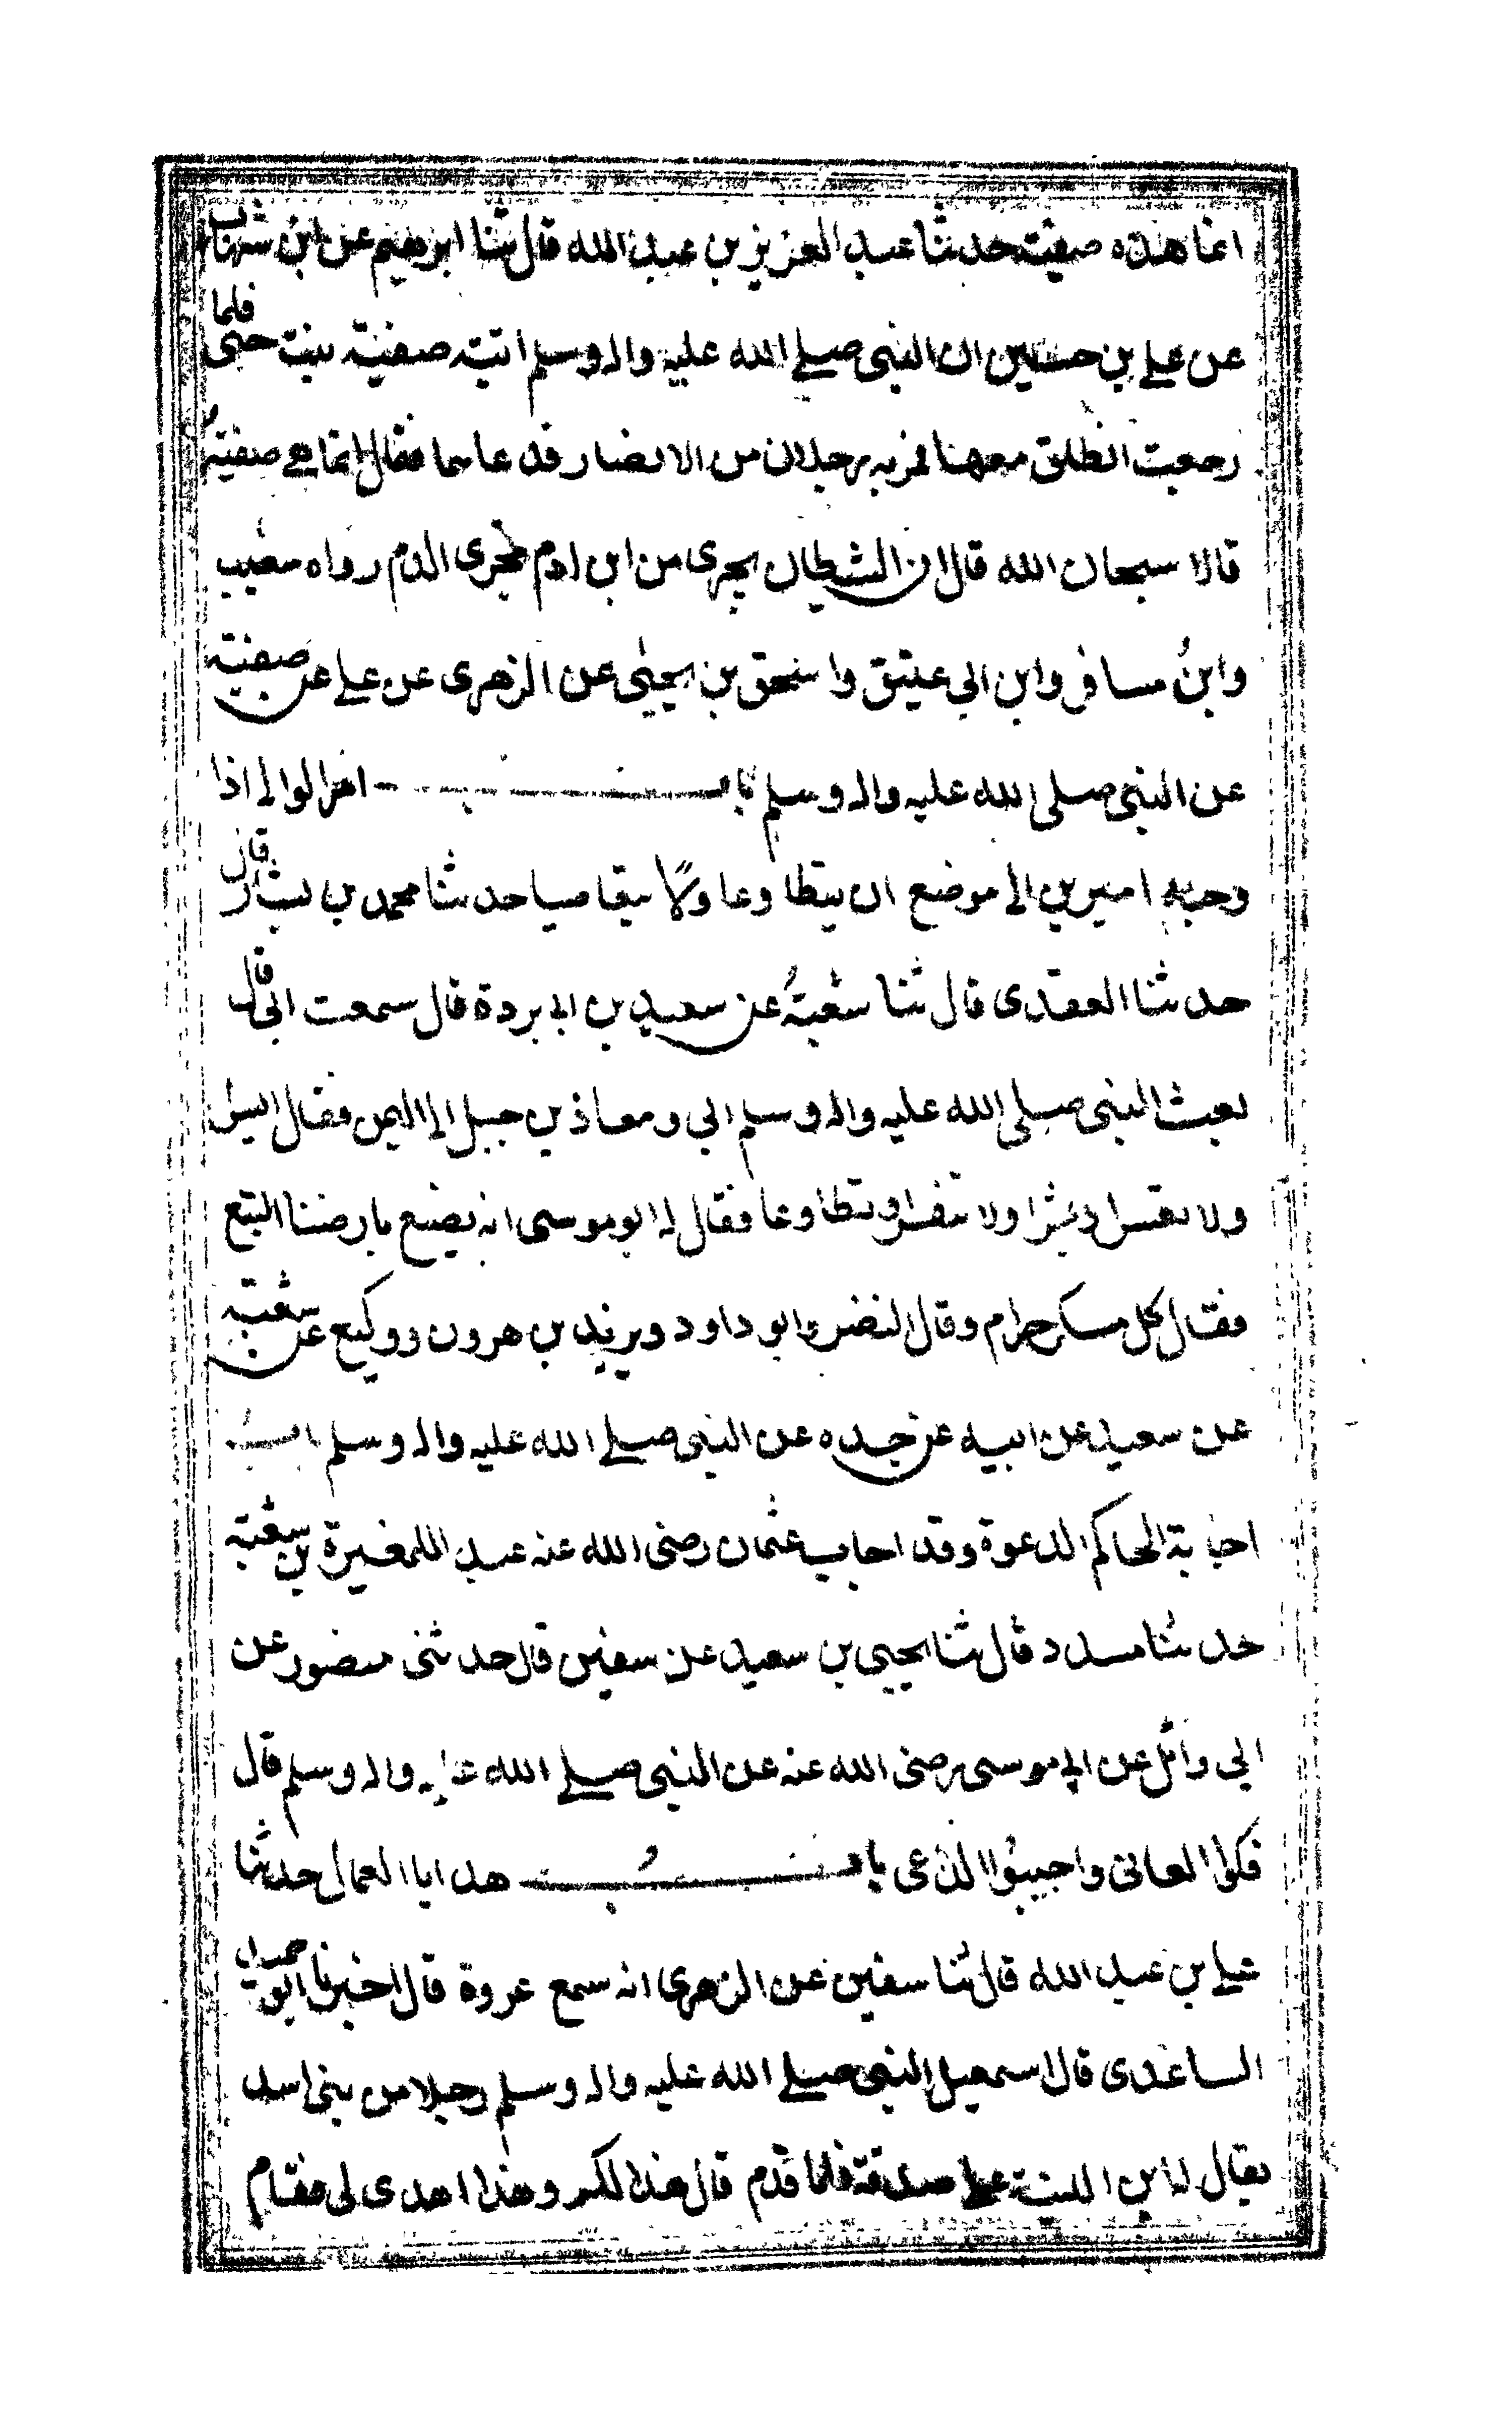 انما هذه صفية حدثنا عبد العزيز بن عبد الله قال ثنا ابرهيم عن ابن شهاب
عن علي بن حسين ان النبى صلى الله عليه واله وسلم اتته صفية بنت حيى فلما
رجعت انطلق معها فمر به رجلان من الانصار فدعاهما فقال انما هي صفية
قالا سبحان الله قال ان الشيطان يجرى من ابن ادم مجرى الدم رواه شعيب
وابن مسافر وابن ابي عتيق واسحق بن يحيى عن الزهرى عن علي عن صفية
عن النبى صلى الله عليه واله وسلم باب امر الوالى اذا
وجه اميرين الى موضع ان يتطاوعا ولا يتعاصيا حدثنا محمد بن بشار قال
حدثنا العقدى قال ثنا شعبة عن سعيد بن ابي بردة قال سمعت ابى قال
بعث النبى صلى الله عليه واله وسلم ابي ومعاذ بن جبل الى اليمن فقال يسرا
ولا تعسرا وبشرا ولا تنفرا وتطاوعا فقال له ابو موسى انه يصنع بارضنا البتع
فقال كل مسكر حرام وقال النضر وابو داود ويزيد بن هرون ووكيع عن شعبة
عن سعيد عن ابيه عن جده عن النبى صلى الله عليه واله وسلم باب
اجابة الحاكم الدعوة وقد اجاب عثمان رضى الله عنه عبد اللمغيرة بن شعبة
حدثنا مسدد قال ثنا يحيى بن سعيد عن سفين قال حدثنى منصور عن
ابي وائل عن ابي موسى رضى الله عنه عن النبى صلى الله عليه واله وسلم قال
فكوا العانى واجيبوا الداعى باب هدايا العمال حدثنا
علي بن عبد الله قال ثنا سفين عن الزهرى انه سمع عروة قال اخبرنا ابو حميد
الساعدى قال استعمل النبى صلى الله عليه واله وسلم رجلا من بنى اسد
يقال له ابن اللتبية على صدقة فلما قدم قال هذا لكم وهذا اهدى لى فقام